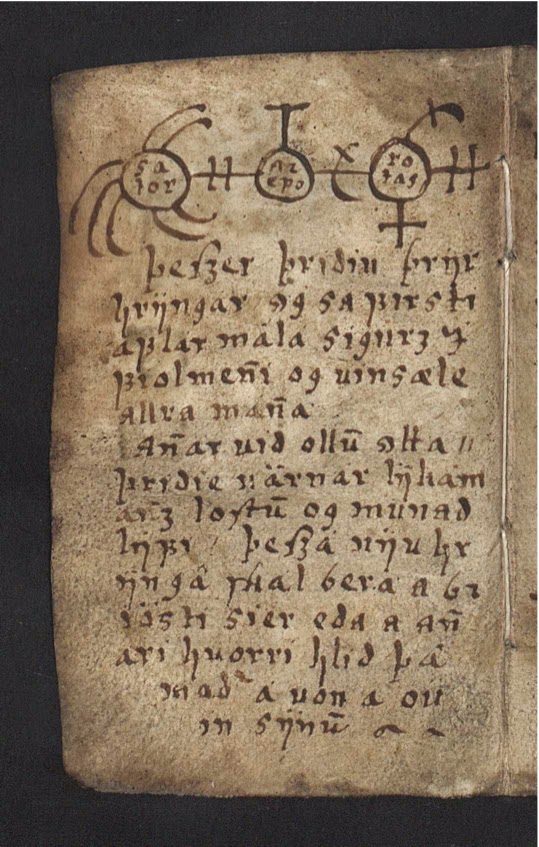 sa tor ar epo ro tas
þeszer þridiu þrijr
hrijngar og sa pirsti
aplar mála sigurz i
piolmen̄i og uinsæle
allra man̄a
An̄ar uid ollū otta
þridie uärnar lijkam
arz lostū og munad
lijpi þeszá niju hr
ijngá skal bera a br
iósti sier eda a an̄
ari huorri hlid þá
mad^r á uon á ou
in sijnū